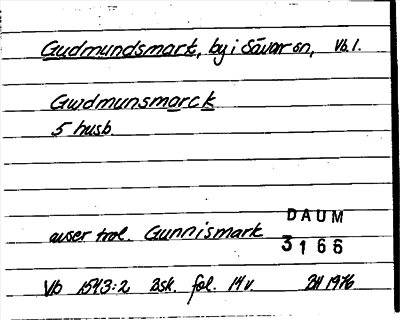 Gudmundsmark, by i Sävar sn, Vb l.
Gwdmunsmarck
5 husb.
avser trol. Gunnismark
DAUM
3166
Vb 1543:2 Bsk. fol. 14 v. BH 1976